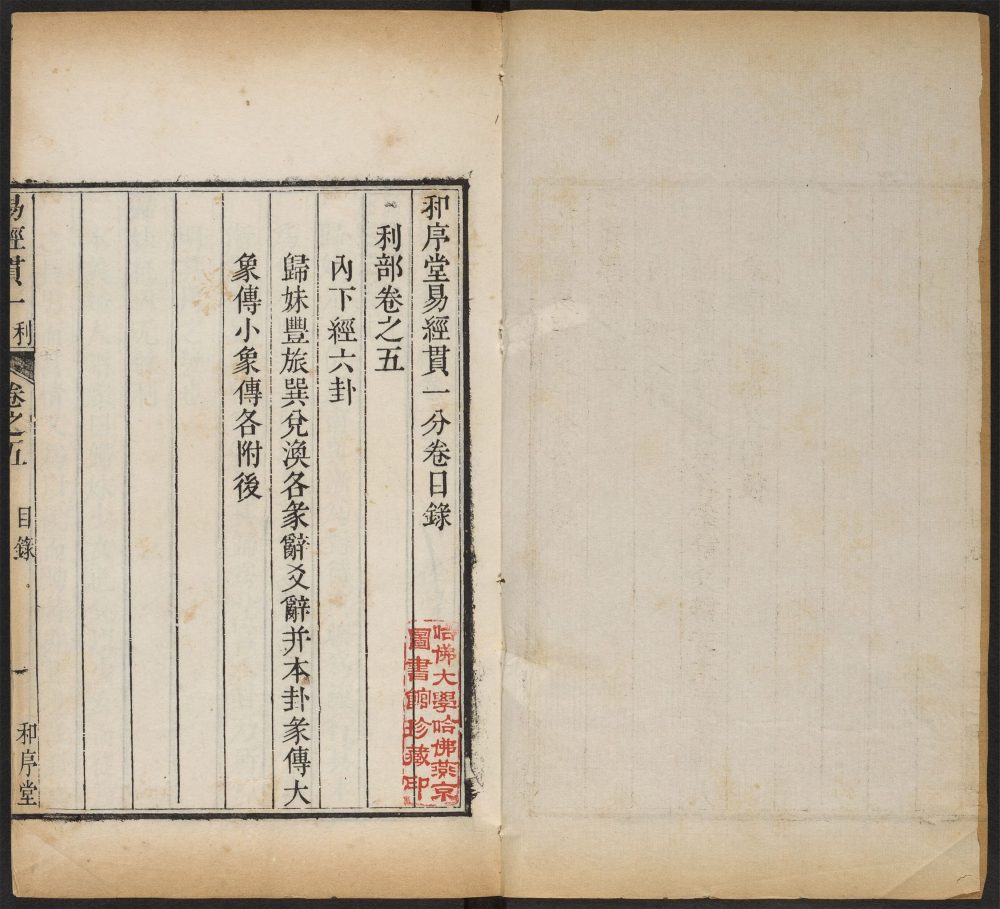 和序堂易經貫一分卷目錄
利部卷之五
內下經六卦
歸妹豐旅巽兌渙各彖辭爻辭并本卦彖傳大
象傳小象傳各附後
哈佛大學哈佛燕京
圖書館珍藏印
易經貫一 利 卷之五 目錄 一 和序堂